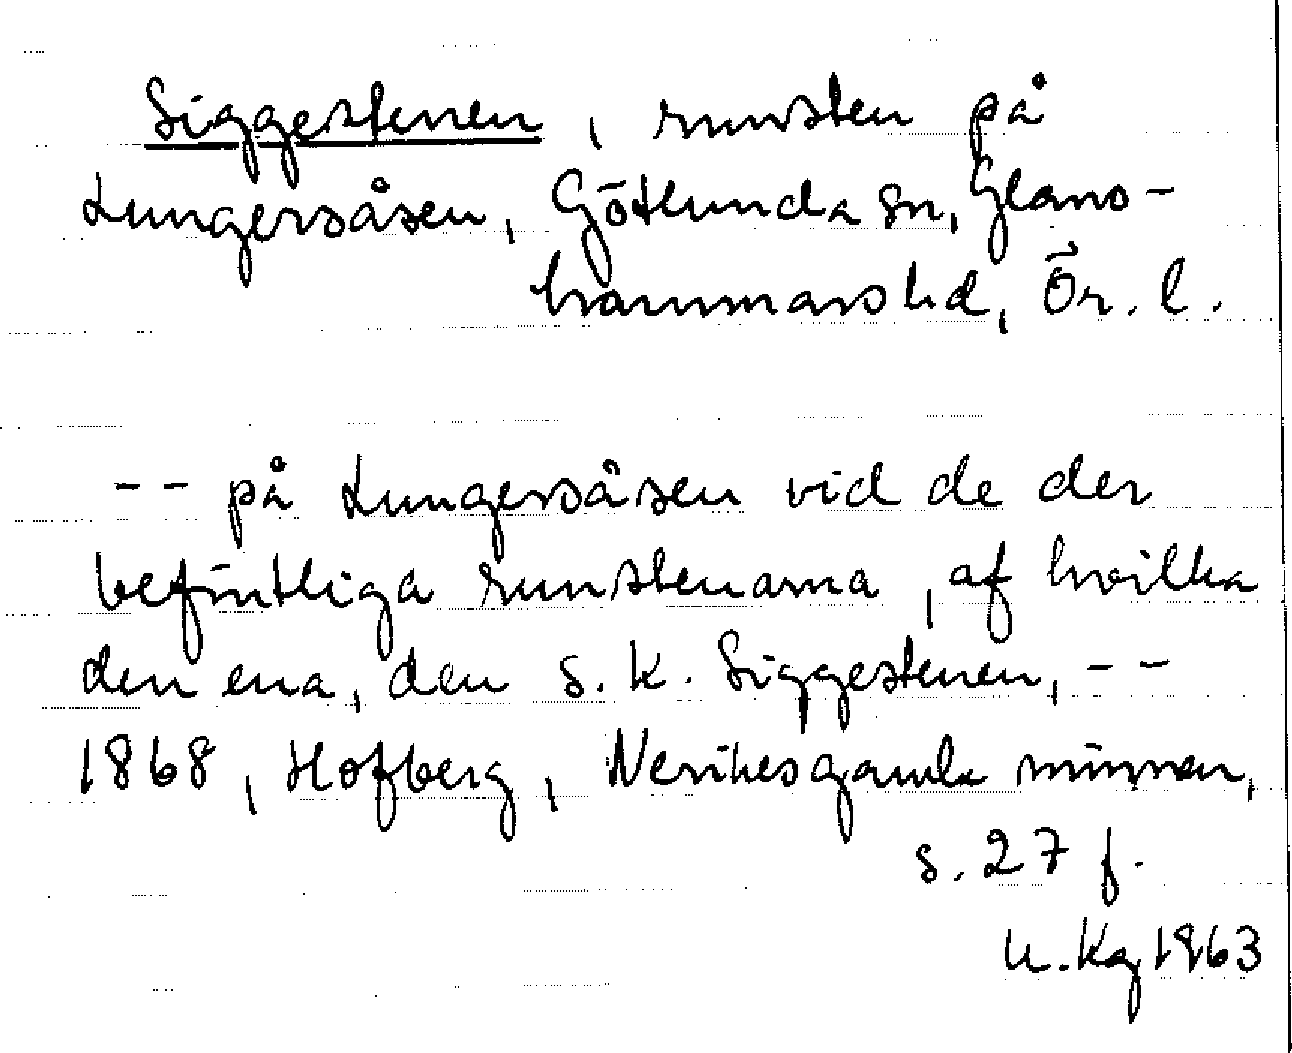 Siggestenen, runsten på
Lungersåsen, Götlunda sn, Glans-
hammars hd, Ör. l.
-- på Lungersåsen vid de der
befintliga runstenarna, af hvilka
den ena, den s.k. Siggestenen, --
1868, Hofberg, Nerikes gamla minnen,
s. 27 f.
1963